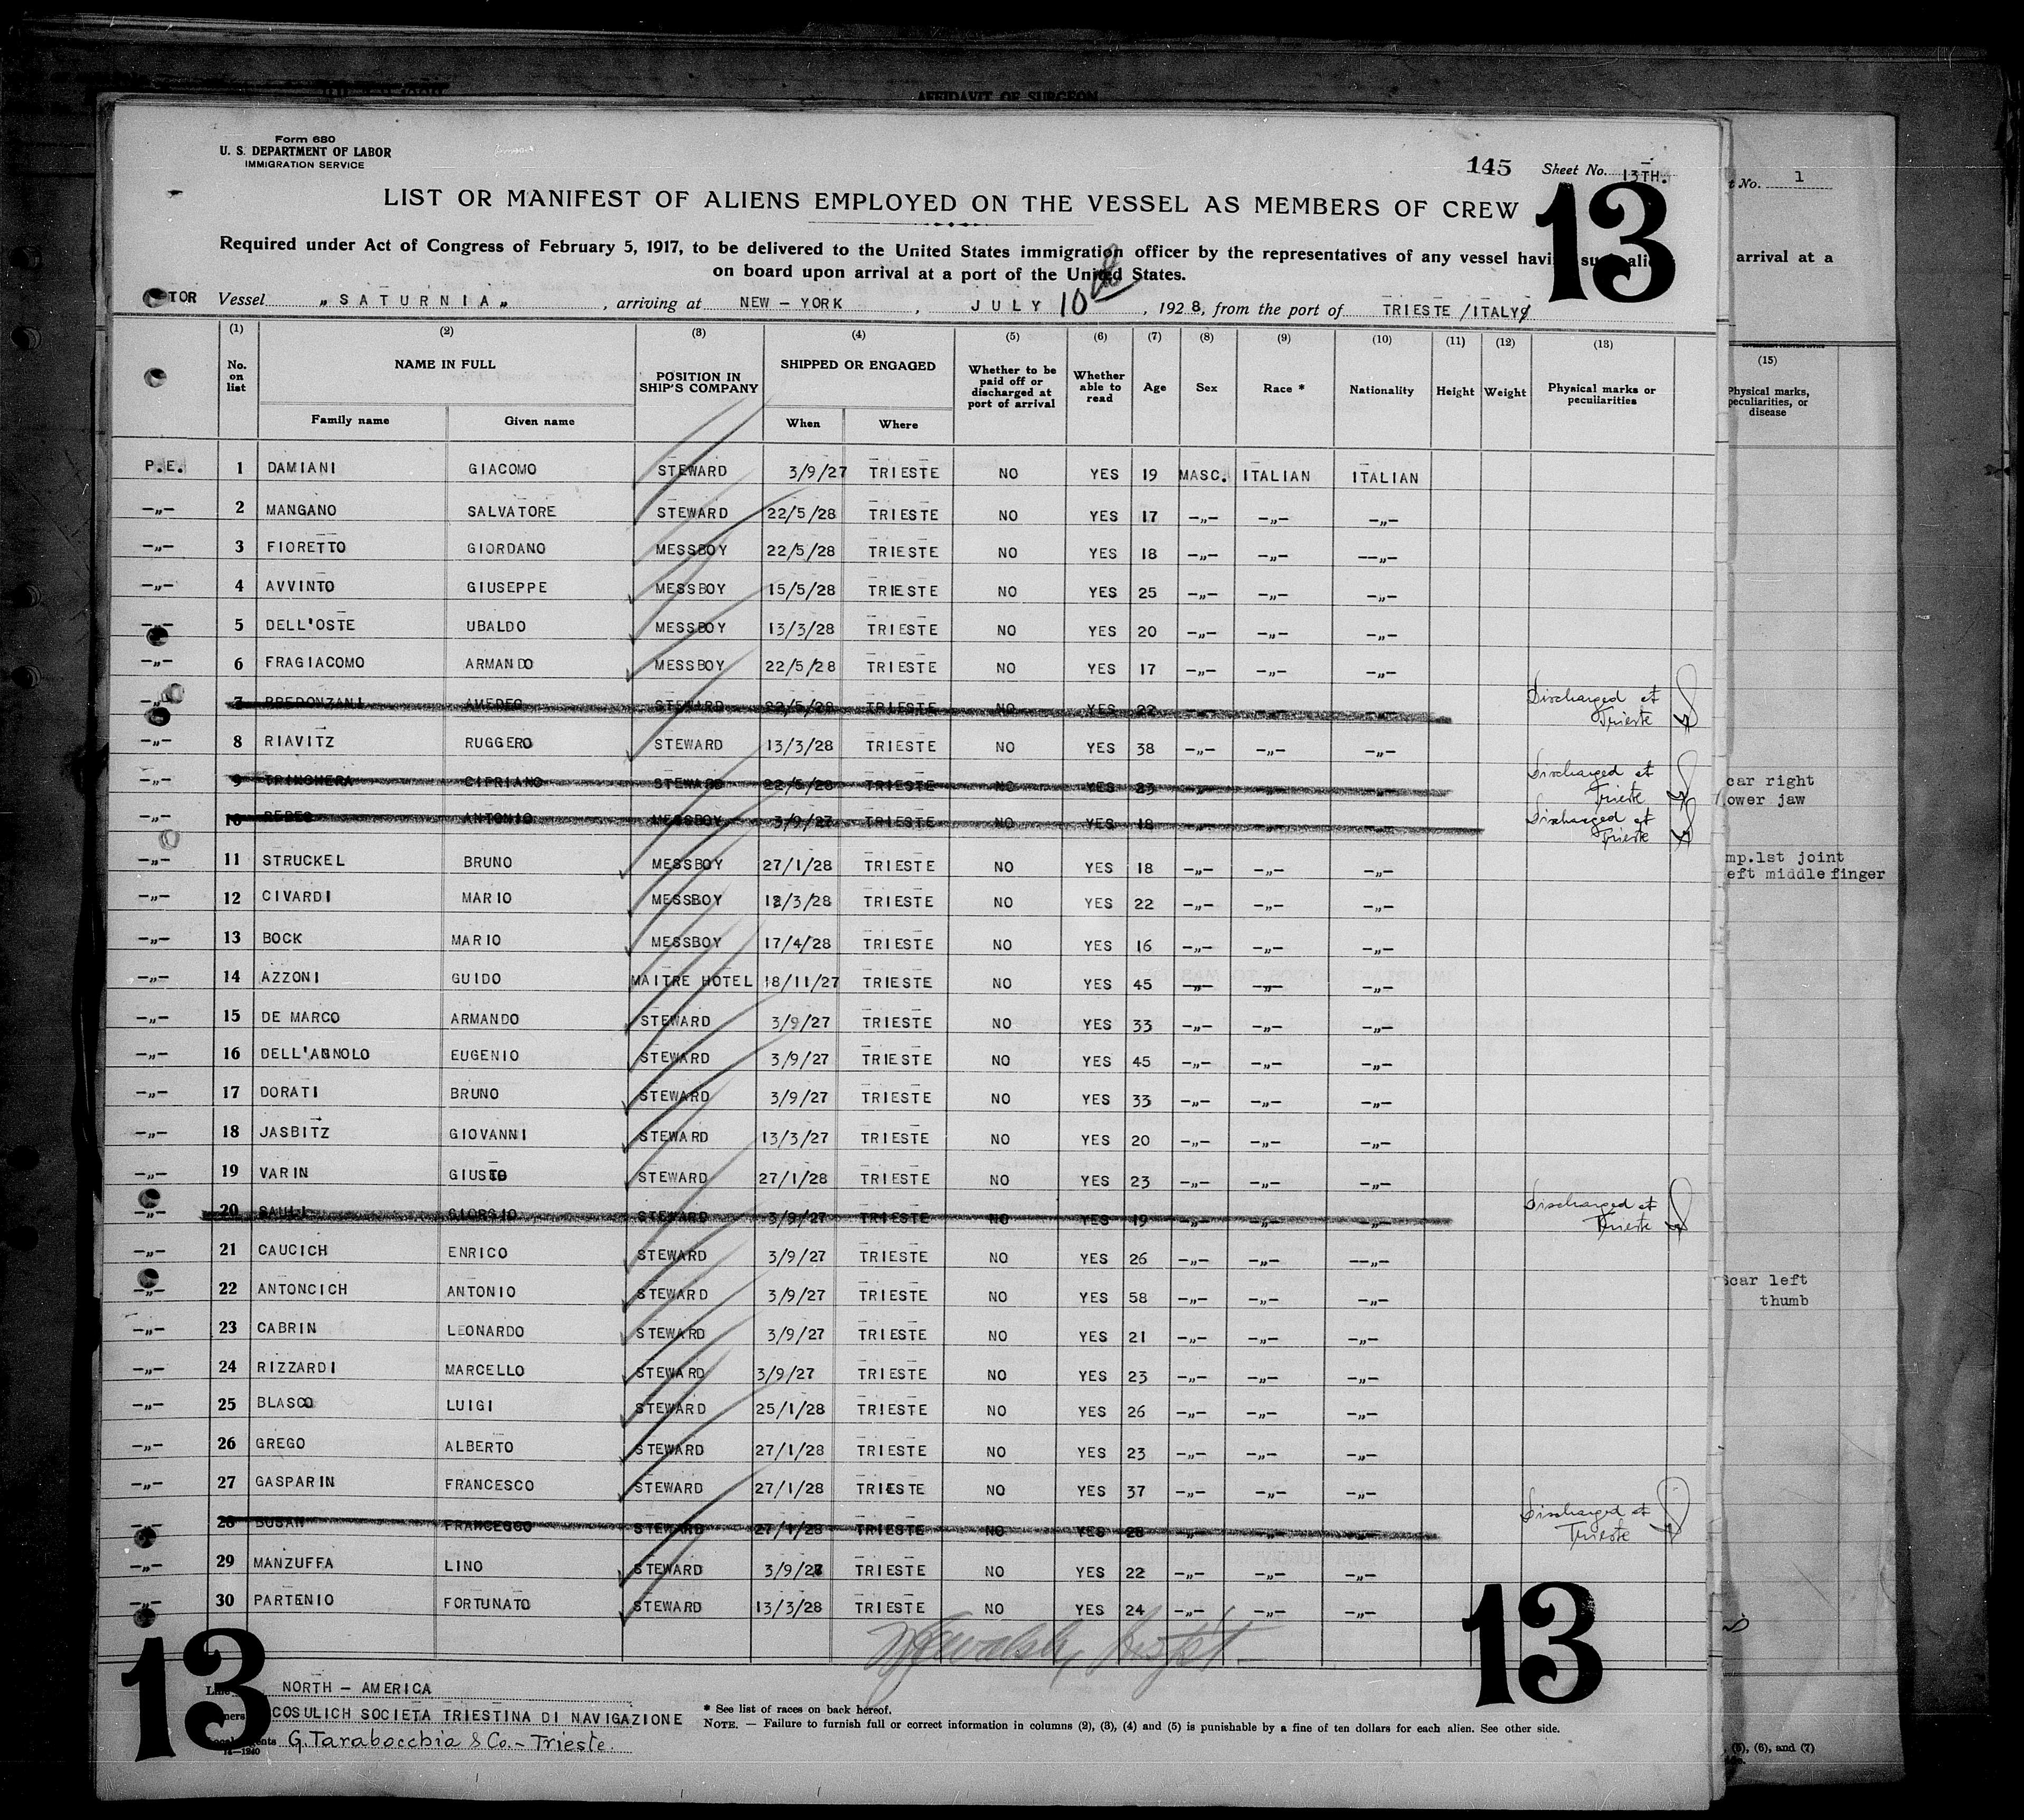 AFFIDAVIT OF SURGEON
Form 680
U. S. DEPARTMENT OF LABOR
IMMIGRATION SERVICE
145 Sheet No. 13TH.
13
LIST OR MANIFEST OF ALIENS EMPLOYED ON THE VESSEL AS MEMBERS OF CREW
Required under Act of Congress of February 5, 1917, to be delivered to the United States immigration officer by the representatives of any vessel having such aliens
on board upon arrival at a port of the United States.
TOR Vessel „SATURNIA„, arriving at NEW-YORK, JULY 10th, 1928, from the port of TRIESTE /ITALY/
(1) (2) (3) (4) (5) (6) (7) (8) (9) (10) (11) (12) (13)
No. on list NAME IN FULL POSITION IN SHIP'S COMPANY SHIPPED OR ENGAGED Whether to be paid off or discharged at port of arrival Whether able to read Age Sex Race * Nationality Height Weight Physical marks or peculiarities
Family name Given name When Where
P.E. 1 DAMIANI GIACOMO STEWARD 3/9/27 TRIESTE NO YES 19 MASC. ITALIAN ITALIAN
-„- 2 MANGANO SALVATORE STEWARD 22/5/28 TRIESTE NO YES 17 -„- -„- -„-
-„- 3 FIORETTO GIORDANO MESSBOY 22/5/28 TRIESTE NO YES 18 -„- -„- --„-
-„- 4 AVVINTO GIUSEPPE MESSBOY 15/5/28 TRIESTE NO YES 25 -„- -„- -„-
-„- 5 DELL'OSTE UBALDO MESSBOY 13/3/28 TRIESTE NO YES 20 -„- -„- -„-
-„- 6 FRAGIACOMO ARMANDO MESSBOY 22/5/28 TRIESTE NO YES 17 -„- -„- -„-
-„- 7 PREDONZANI AMEDEO STEWARD 22/5/28 TRIESTE NO YES 22 -„- -„- -„- Discharged at Trieste
-„- 8 RIAVITZ RUGGERO STEWARD 13/3/28 TRIESTE NO YES 38 -„- -„- -„-
-„- 9 TRINCHERA CIPRIANO STEWARD 22/5/28 TRIESTE NO YES 23 -„- -„- -„- Discharged at Trieste
-„- 10 ANTONIO MESSBOY 3/9/27 TRIESTE NO YES 18 -„- -„- -„- Discharged at Trieste
-„- 11 STRUCKEL BRUNO MESSBOY 27/1/28 TRIESTE NO YES 18 -„- -„- -„-
-„- 12 CIVARDI MARIO MESSBOY /3/28 TRIESTE NO YES 22 -„- -„- -„-
-„- 13 BOCK MARIO MESSBOY 17/4/28 TRIESTE NO YES 16 -„- -„- -„-
-„- 14 AZZONI GUIDO MAITRE HOTEL 18/11/27 TRIESTE NO YES 45 -„- -„- -„-
-„- 15 DE MARCO ARMANDO STEWARD 3/9/27 TRIESTE NO YES 33 -„- -„- -„-
-„- 16 DELL'AGNOLO EUGENIO STEWARD 3/9/27 TRIESTE NO YES 45 -„- -„- -„-
-„- 17 DORATI BRUNO STEWARD 3/9/27 TRIESTE NO YES 33 -„- -„- -„-
-„- 18 JASBITZ GIOVANNI STEWARD 13/3/27 TRIESTE NO YES 20 -„- -„- -„-
-„- 19 VARIN GIUSTO STEWARD 27/1/28 TRIESTE NO YES 23 -„- -„- -„-
-„- 20 SAULI GIORGIO STEWARD 3/9/27 TRIESTE NO YES 19 -„- -„- -„- Discharged at Trieste
-„- 21 CAUCICH ENRICO STEWARD 3/9/27 TRIESTE NO YES 26 -„- -„- --„-
-„- 22 ANTONCICH ANTONIO STEWARD 3/9/27 TRIESTE NO YES 58 -„- -„- -„-
-„- 23 CABRIN LEONARDO STEWARD 3/9/27 TRIESTE NO YES 21 -„- -„- -„-
-„- 24 RIZZARDI MARCELLO STEWARD 3/9/27 TRIESTE NO YES 23 -„- -„- -„-
-„- 25 BLASCO LUIGI STEWARD 25/1/28 TRIESTE NO YES 26 -„- -„- -„-
-„- 26 GREGO ALBERTO STEWARD 27/1/28 TRIESTE NO YES 23 -„- -„- -„-
-„- 27 GASPARIN FRANCESCO STEWARD 27/1/28 TRIESTE NO YES 37 -„- -„- -„-
-„- 28 BUSAN FRANCESCO STEWARD 27/1/28 TRIESTE NO YES 28 -„- -„- -„- Discharged at Trieste
-„- 29 MANZUFFA LINO STEWARD 3/9/27 TRIESTE NO YES 22 -„- -„- -„-
-„- 30 PARTENIO FORTUNATO STEWARD 13/3/28 TRIESTE NO YES 24 -„- -„- -„-
13
13
Line NORTH - AMERICA
COSULICH SOCIETA TRIESTINA DI NAVIGAZIONE
G. Tarabocchia & Co. - Trieste.
* See list of races on back hereof.
NOTE. — Failure to furnish full or correct information in columns (2), (3), (4) and (5) is punishable by a fine of ten dollars for each alien. See other side.
No. 1
arrival at a
(15)
Physical marks, peculiarities, or disease
car right
lower jaw
mp.1st joint
eft middle finger
Scar left
thumb
(6), and (7)